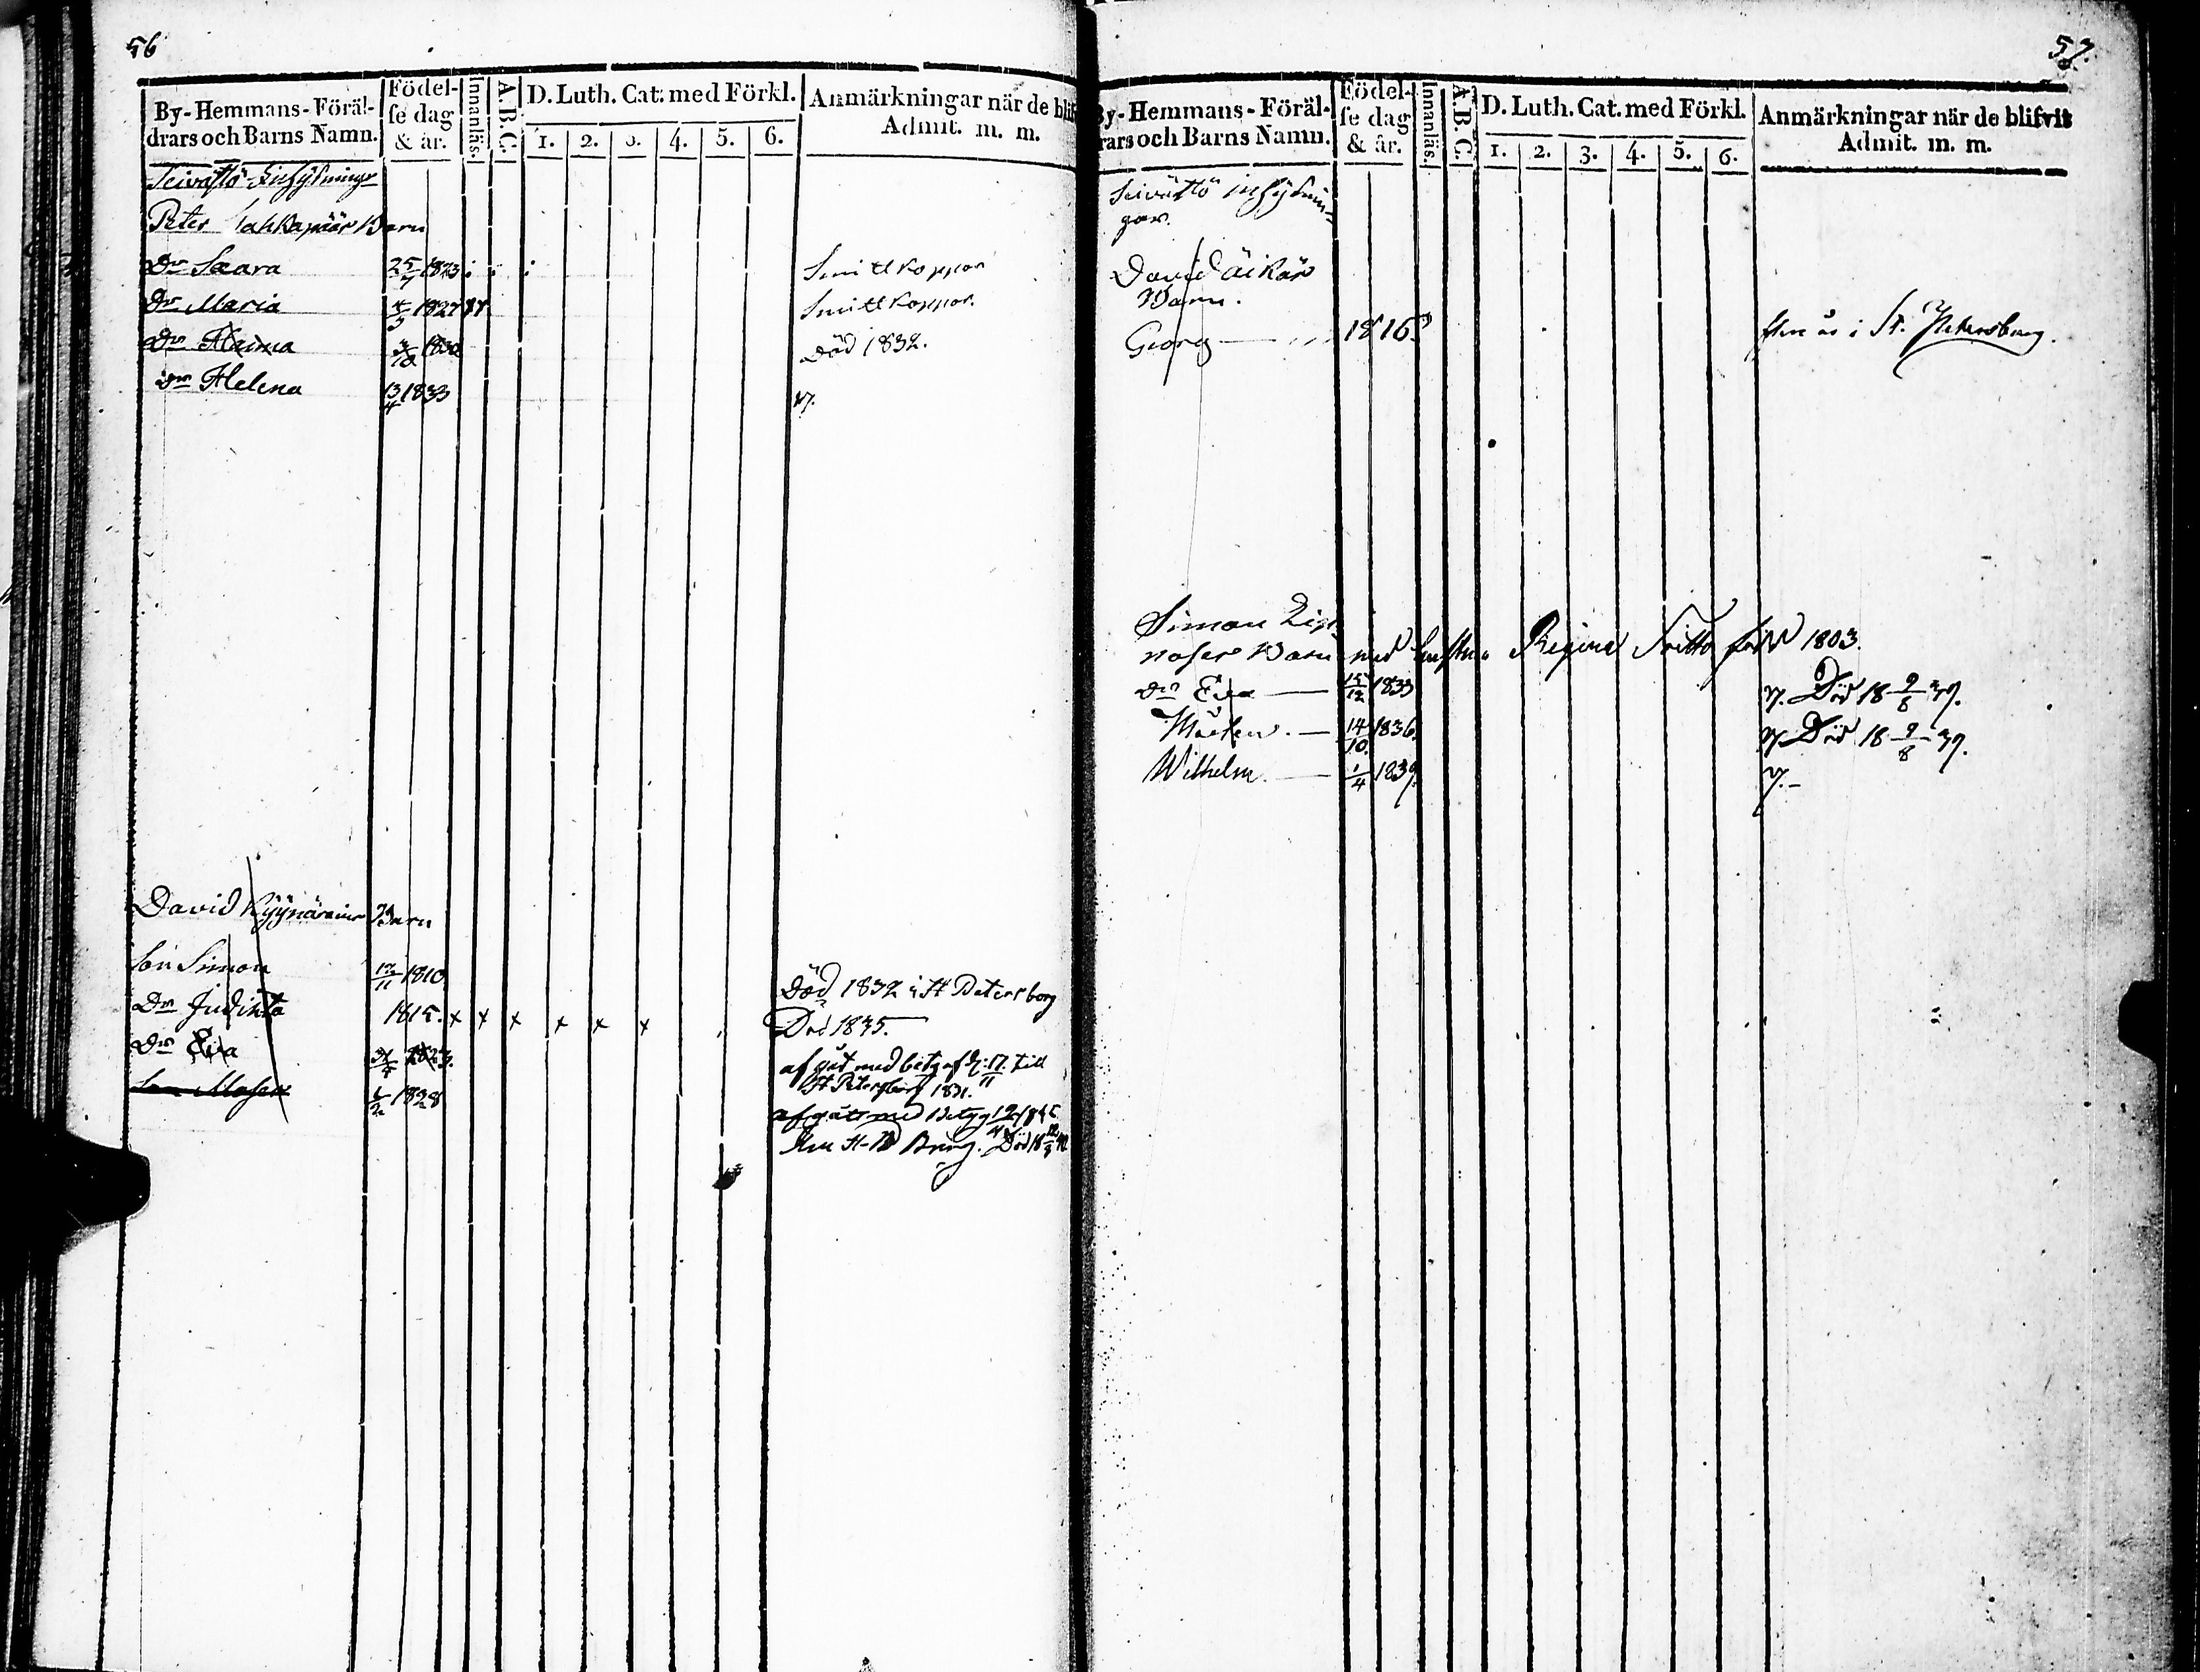 56
By-Hemmans-Föräl-
drars och Barns Namn.
Födel-
se dag
& år.
Innanläs.
A.B.C.
D. Luth. Cat: med Förkl.
1. 2. 3. 4. 5. 6.
Anmärkningar när de blif
Admit. m. m.
Seivästö Inhysningr
Peter Barn
Dr Saara 25/7 1823 Smittkoppor
Dr Maria 4/3 1827 Smittkoppor.
Dr Hanna 3/10 1830 Död 1832.
Dr Helena 13/4 1833 v.
David Kyynäräine Barn
Son Simon 17/11 1810 Död 1832 i St Petersborg
Dr Juditta 1815. x x x x x x Död 1835.
Dr Eva 1823. afgåt med betyg af d: 17/11 till
St Petersburg 1831.
Son Mosen 6/2 1828 afgått med Betyg 12
Död 18
57.
By-Hemmans-Föräl-
rars och Barns Namn.
Födel-
se dag
& år.
Innanläs.
A.B.C.
D. Luth. Cat. med Förkl.
1. 2. 3. 4. 5. 6.
Anmärkningar när de blifvit
Admit. m. m.
Seivästö inhysnin-
gar.
David Äikäs
Barn.
Georg 1816. i St. Petersburg.
Simon
Barn med hustru Regina född 1803.
Dr Eva 15/12 1833 v. Död 18 9/8 37.
Mårten. 14/10 1836. v. Död 18 9/8 37.
Wilhelm. 1/4 1839. v.